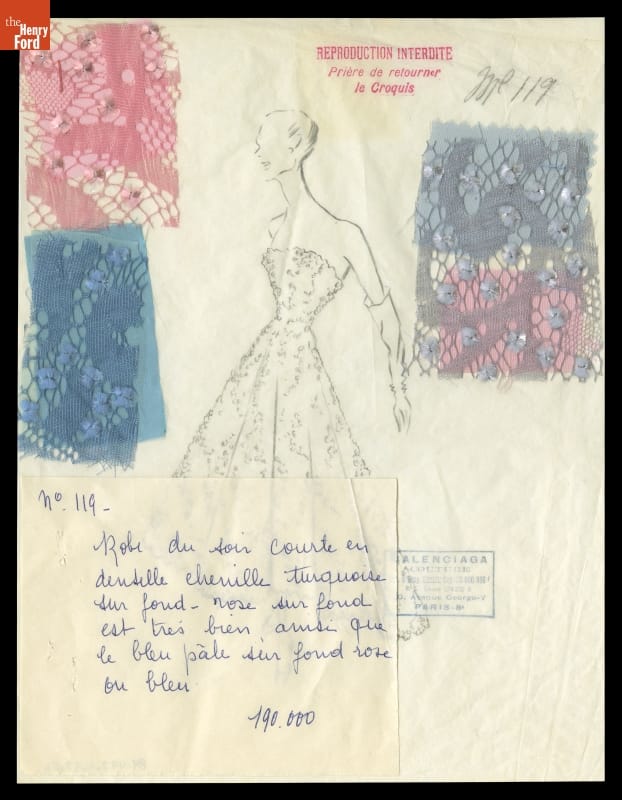 the
Henry
Ford
REPRODUCTION INTERDITE
Prière de retourner
le Croquis
119
Nº. 119 -
Robe du soir courte en
dentelle chenille turquoise
sur fond - rose sur fond
est très bien, ainsi que
le bleu pâle sur fond rose
ou bleu.
190.000
BALENCIAGA
10, Avenue George-V
PARIS-8e